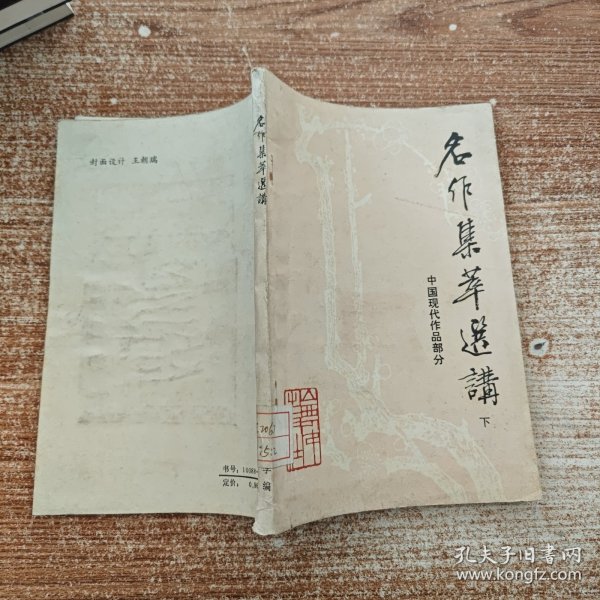 名作集萃選講
下
中国现代作品部分
名作集萃選講
子 编
封面设计 王朝瑞
书号:10088·
定价: 0.
孔夫子旧书网
www.kongfz.com